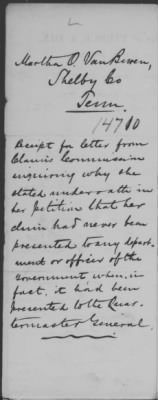 Martha A. Van Bowen,
Shelby Co
Tenn.
14710
Receipt for letter from
Claims Commission
enquiring why she
stated under oath in
her petition that her
claim had never been
presented to any depart-
ment or officer of the
Government when, in
fact, it had been
presented to the Quar-
termaster General.